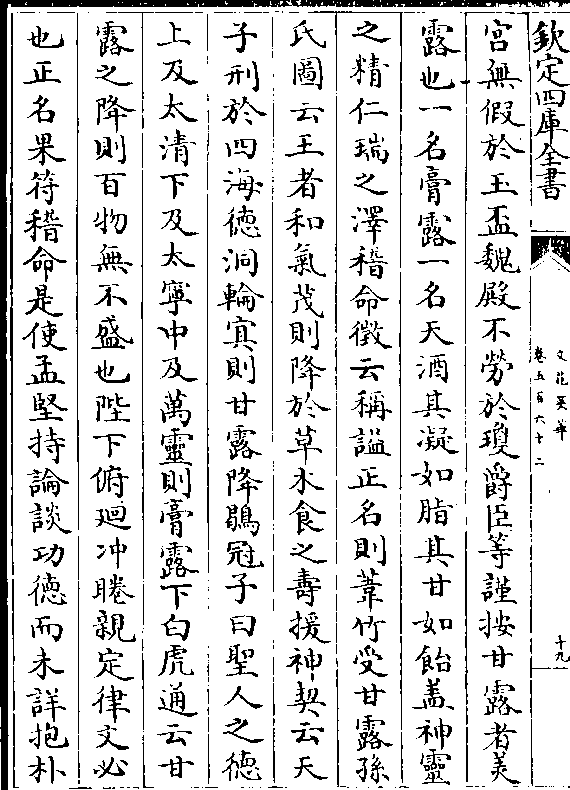 欽定四庫全書
文苑英華
卷五百六十二
十九
宫無假於王盃魏殿不勞於瓊爵臣等謹按甘露者美
露也一名膏露一名天酒其凝如脂其甘如飴盖神靈
之精仁瑞之澤稽命徵云稱諡正名則葦竹受甘露孫
氏圖云王者和氣茂則降於草木食之壽援神契云天
子刑於四海徳洞輪冥則甘露降鶡冠子曰聖人之德
上及太清下及太寧中及萬靈則膏露下白虎通云甘
露之降則百物無不盛也陛下俯廻冲睠親定律文必
也正名果符稽命是使孟堅持論談功徳而未詳抱朴